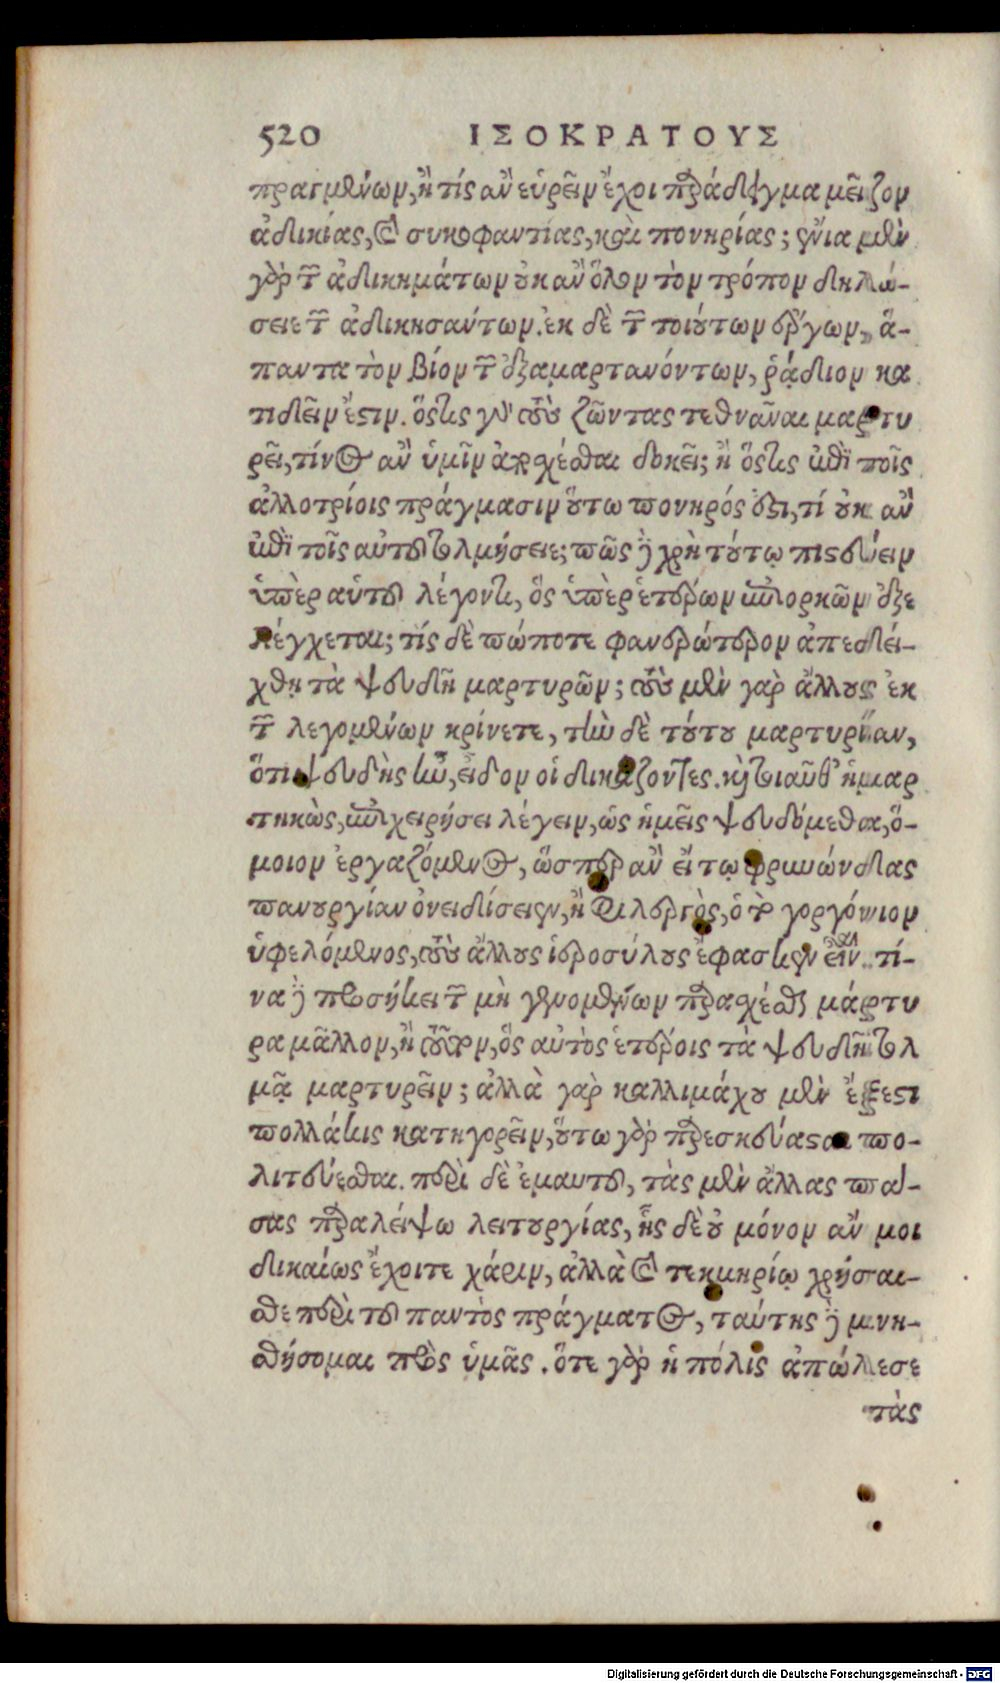 520 ΙΣΟΚΡΑΤΟΥΣ
πραγμένων, ἢ τίς ἂν εὑρεῖν ἔχοι παράδειγμα μεῖζον
ἀδικίας, καὶ συκοφαντίας, καὶ πονηρίας; ἔνια μὲν
γὰρ τῶν ἀδικημάτων οὐκ ἂν ὅλον τὸν τρόπον δηλώ-
σειε τῶν ἀδικησάντων. ἐκ δὲ τῶν τοιούτων ἔργων, ἅ-
παντα τὸν βίον τῶν ἐξαμαρτανόντων, ῥᾴδιον κα
τιδεῖν ἐστιν. ὅστις γὰρ τοὺς ζῶντας τεθνᾶναι μαρτυ
ρεῖ, τίνος ἂν ὑμῖν ἀπέχεσθαι δοκεῖ; ἢ ὅστις ἐπὶ τοῖς
ἀλλοτρίοις πράγμασιν οὕτω πονηρός ἐστι, τί οὐκ ἂν
ἐπὶ τοῖς αὑτοῦ τολμήσειε; πῶς δὲ χρὴ τούτῳ πιστεύειν
ὑπὲρ αὑτοῦ λέγοντι, ὃς ὑπὲρ ἑτέρων ἐπιορκῶν ἐξε
λέγχεται; τίς δὲ πώποτε φανερώτερον ἀπεδεί-
χθη τὰ ψευδῆ μαρτυρῶν; τοὺς μὲν γὰρ ἄλλους ἐκ
τῶν λεγομένων κρίνετε, τὴν δὲ τούτου μαρτυρίαν,
ὅτι ψευδὴς ἦν, εἶδον οἱ δικάζοντες. καὶ τοιαῦθ' ἡμαρ
τηκὼς, ἐπιχειρήσει λέγειν, ὡς ἡμεῖς ψευδόμεθα, ὅ-
μοιον ἐργαζόμενος, ὥσπερ ἂν εἴ τῳ φρυνώνδας
πανουργίαν ὀνειδίσειεν, ἢ φιλεργὸς, ὁ τὸ γοργόνιον
ὑφελόμενος, τοὺς ἄλλους ἱεροσύλους ἔφασκεν εἶναι. τί-
να δὲ προσήκει τῶν μὴ γενομένων παρασχέσθαι μάρτυ
ρα μᾶλλον, ἢ τοῦτον, ὃς αὐτὸς ἑτέροις τὰ ψευδῆ τολ
μᾷ μαρτυρεῖν; ἀλλὰ γὰρ καλλιμάχου μὲν ἔξεστι
πολλάκις κατηγορεῖν, οὕτω γὰρ παρεσκεύασται πο-
λιτεύεσθαι. περὶ δὲ ἐμαυτοῦ, τὰς μὲν ἄλλας πά-
σας παραλείψω λειτουργίας, ἧς δὲ οὐ μόνον ἄν μοι
δικαίως ἔχοιτε χάριν, ἀλλὰ καὶ τεκμηρίῳ χρήσαι-
σθε περὶ τοῦ παντὸς πράγματος, ταύτης δὲ μνη-
σθήσομαι πρὸς ὑμᾶς. ὅτε γὰρ ἡ πόλις ἀπώλεσε
τὰς
Digitalisierung gefördert durch die Deutsche Forschungsgemeinschaft - DFG